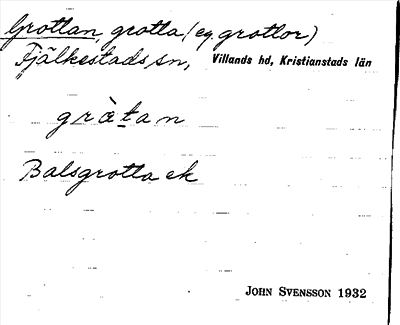 Grottan, grotta (eg. grottor)
Fjälkestads sn, Villands hd, Kristianstads län
gràtan
Balsgrotta ek
JOHN SVENSSON 1932